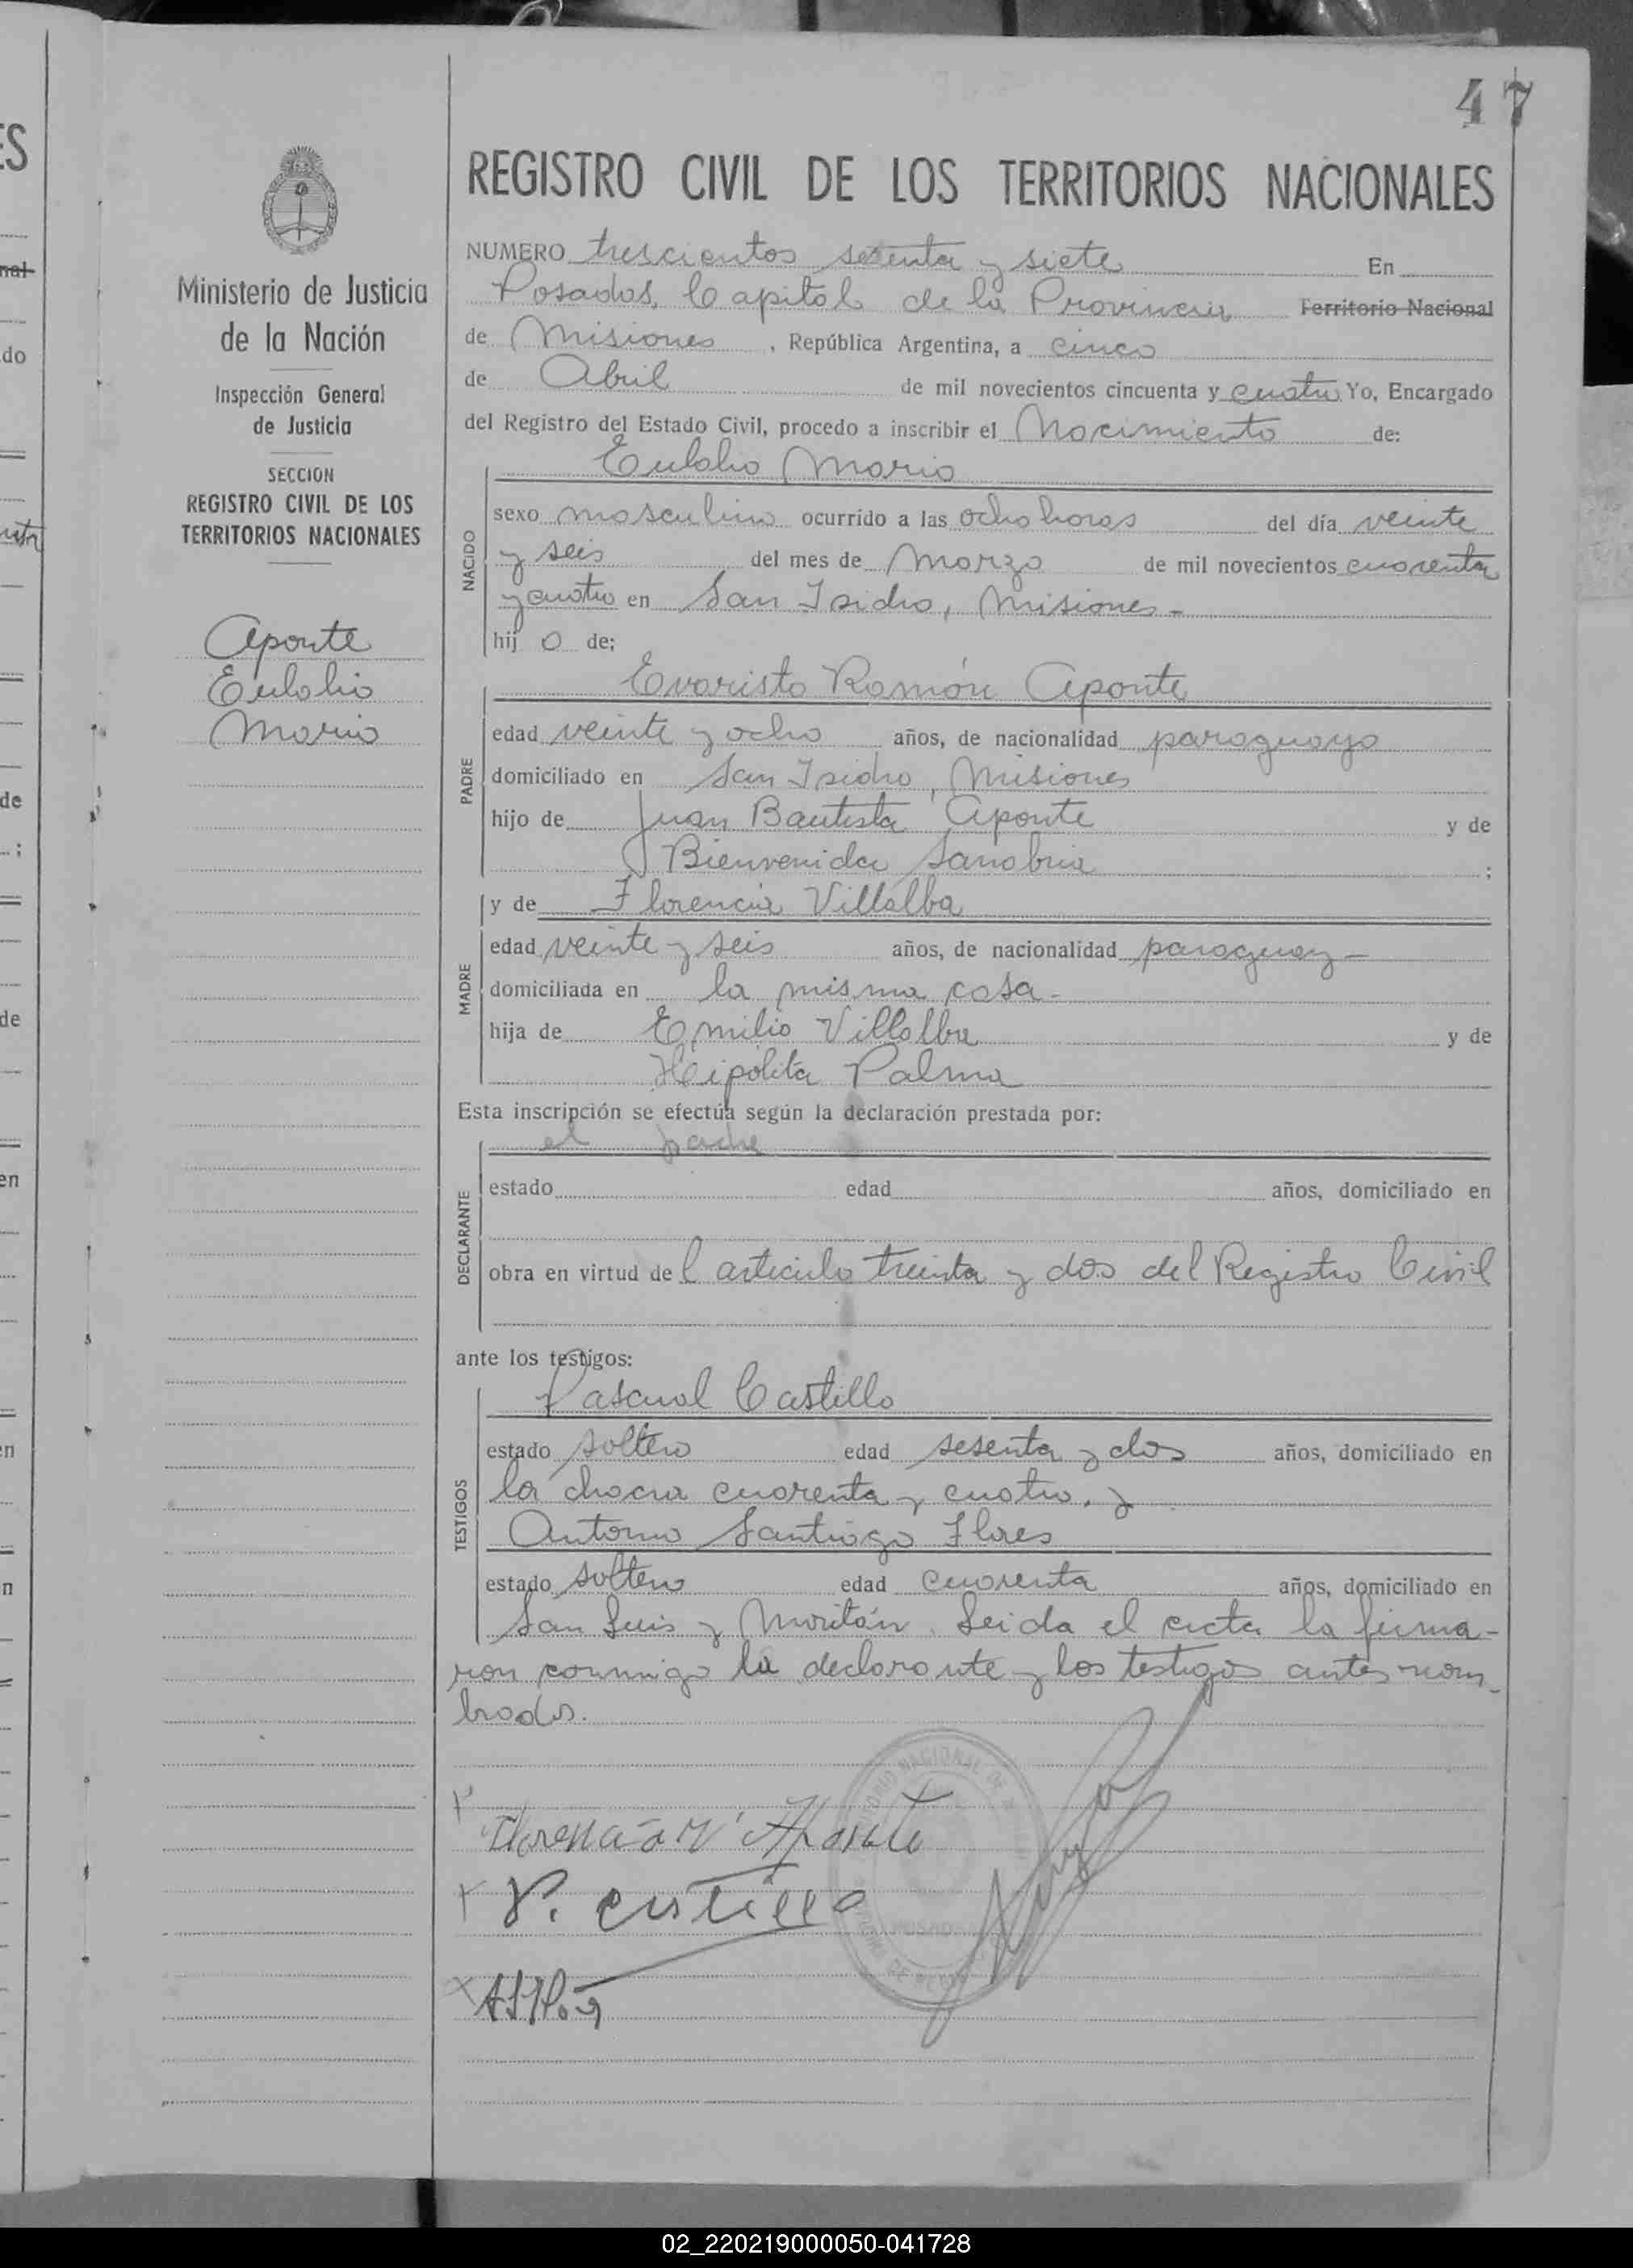 47
REGISTRO CIVIL DE LOS TERRITORIOS NACIONALES
Ministerio de Justicia
de la Nación
Inspección General
de Justicia
SECCION
REGISTRO CIVIL DE LOS
TERRITORIOS NACIONALES
Aponte
Eulalio
Mario
NUMERO trescientos setenta y siete En
Posadas, Capital de la Provincia Territorio Nacional
de Misiones, República Argentina, a cinco
de Abril de mil novecientos cincuenta y cuatro Yo, Encargado
del Registro del Estado Civil, procedo a inscribir el Nacimiento de:
Eulalio Mario
NACIDO
sexo masculino ocurrido a las ocho horas del día veinte
y seis del mes de Marzo de mil novecientos cuarenta
y cuatro en San Isidro, Misiones-
hij o de;
Evaristo Ramón Aponte
PADRE
edad veinte y ocho años, de nacionalidad paraguayo
domiciliado en San Isidro, Misiones
hijo de Juan Bautista Aponte y de
Bienvenida Sanabria ;
y de Florencia Villalba
MADRE
edad veinte y seis años, de nacionalidad paraguay-
domiciliada en la misma casa-
hija de Emilio Villalba y de
Hipólita Palma
Esta inscripción se efectúa según la declaración prestada por:
el padre
DECLARANTE
estado edad años, domiciliado en
obra en virtud del articulo treinta y dos del Registro Civil
ante los testigos:
Pascual Castillo
TESTIGOS
estado soltero edad sesenta y dos años, domiciliado en
la chacra cuarenta y cuatro, y
Antonio Santiago Flores
estado soltero edad cuarenta años, domiciliado en
San Luis y Moritán. Leida el acta la firma-
ron conmigo la declarante y los testigos antes nom-
brados.
Florencia V Aponte
P. Castillo
02_220219000050-041728